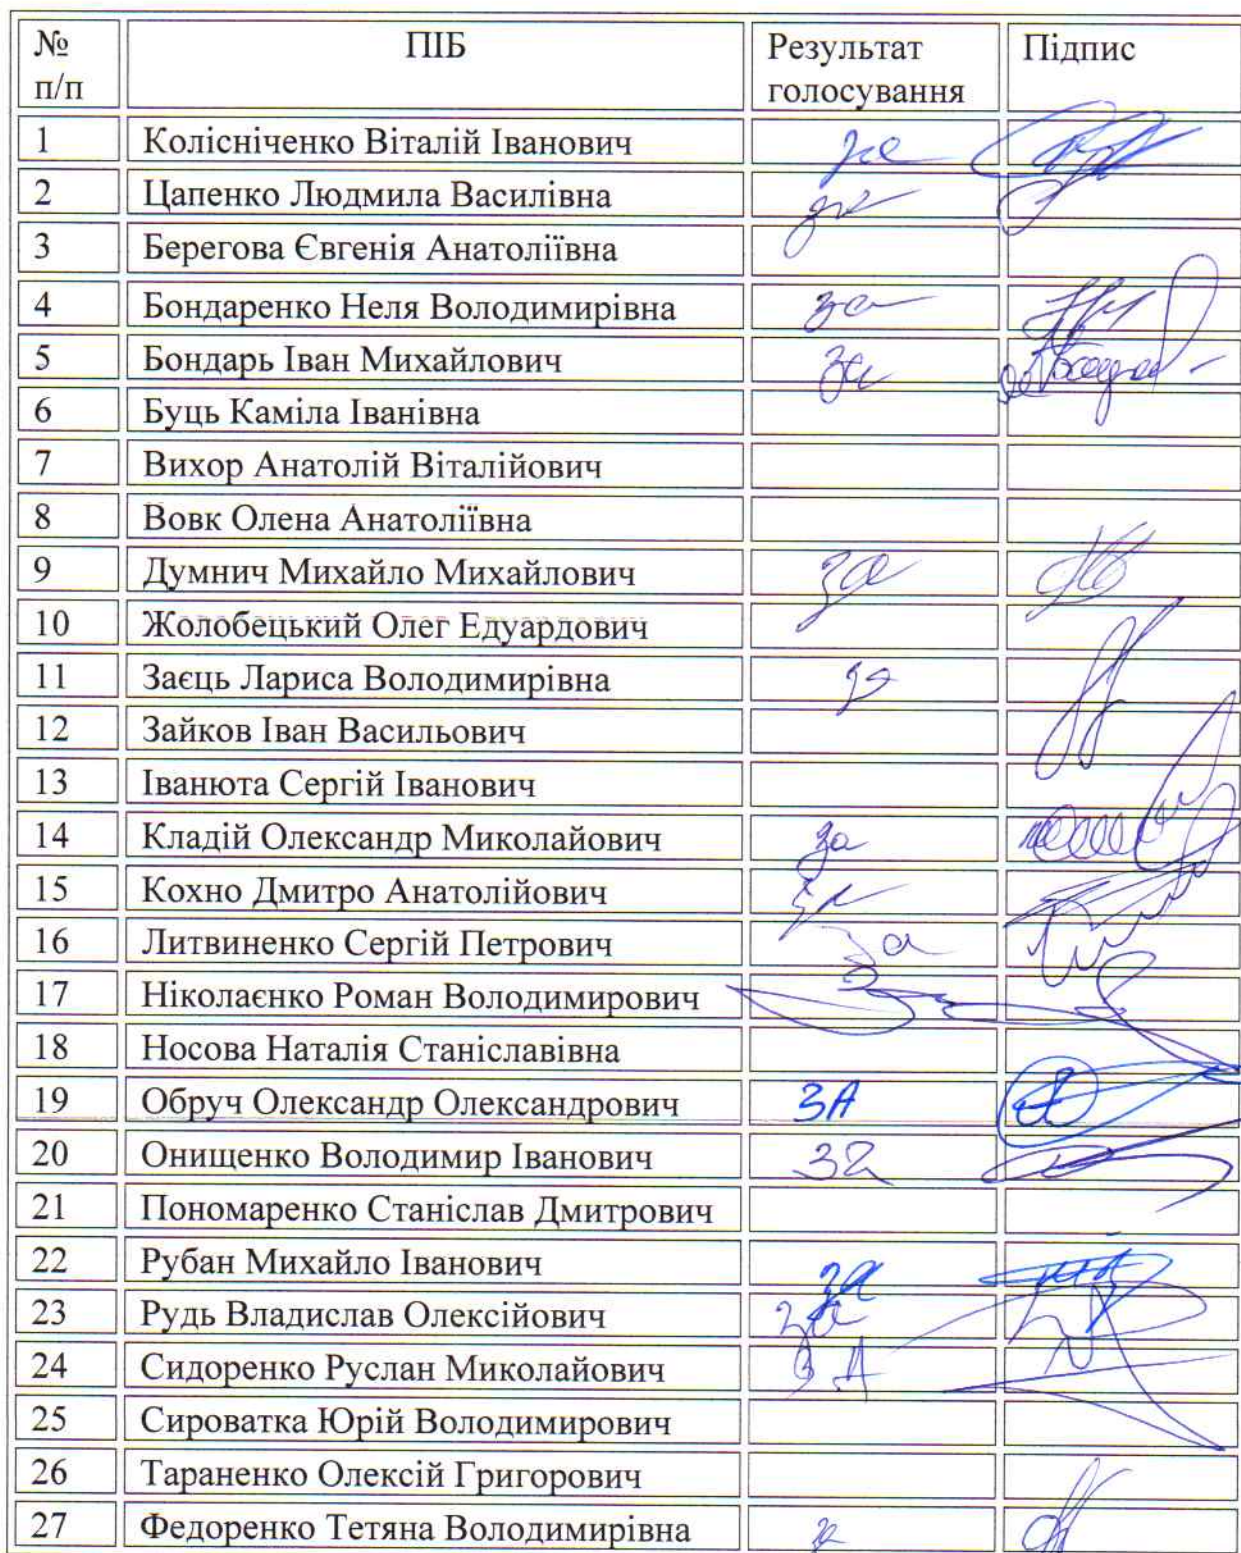 № п/п ПІБ Результат голосування Підпис
1 Колісніченко Віталій Іванович за
2 Цапенко Людмила Василівна за
3 Берегова Євгенія Анатоліївна
4 Бондаренко Неля Володимирівна за
5 Бондарь Іван Михайлович за
6 Буць Каміла Іванівна
7 Вихор Анатолій Віталійович
8 Вовк Олена Анатоліївна
9 Думнич Михайло Михайлович за
10 Жолобецький Олег Едуардович
11 Заєць Лариса Володимирівна за
12 Зайков Іван Васильович
13 Іванюта Сергій Іванович
14 Кладій Олександр Миколайович за
15 Кохно Дмитро Анатолійович за
16 Литвиненко Сергій Петрович за
17 Ніколаєнко Роман Володимирович
18 Носова Наталія Станіславівна
19 Обруч Олександр Олександрович ЗА
20 Онищенко Володимир Іванович за
21 Пономаренко Станіслав Дмитрович
22 Рубан Михайло Іванович за
23 Рудь Владислав Олексійович за
24 Сидоренко Руслан Миколайович ЗА
25 Сироватка Юрій Володимирович
26 Тараненко Олексій Григорович
27 Федоренко Тетяна Володимирівна за